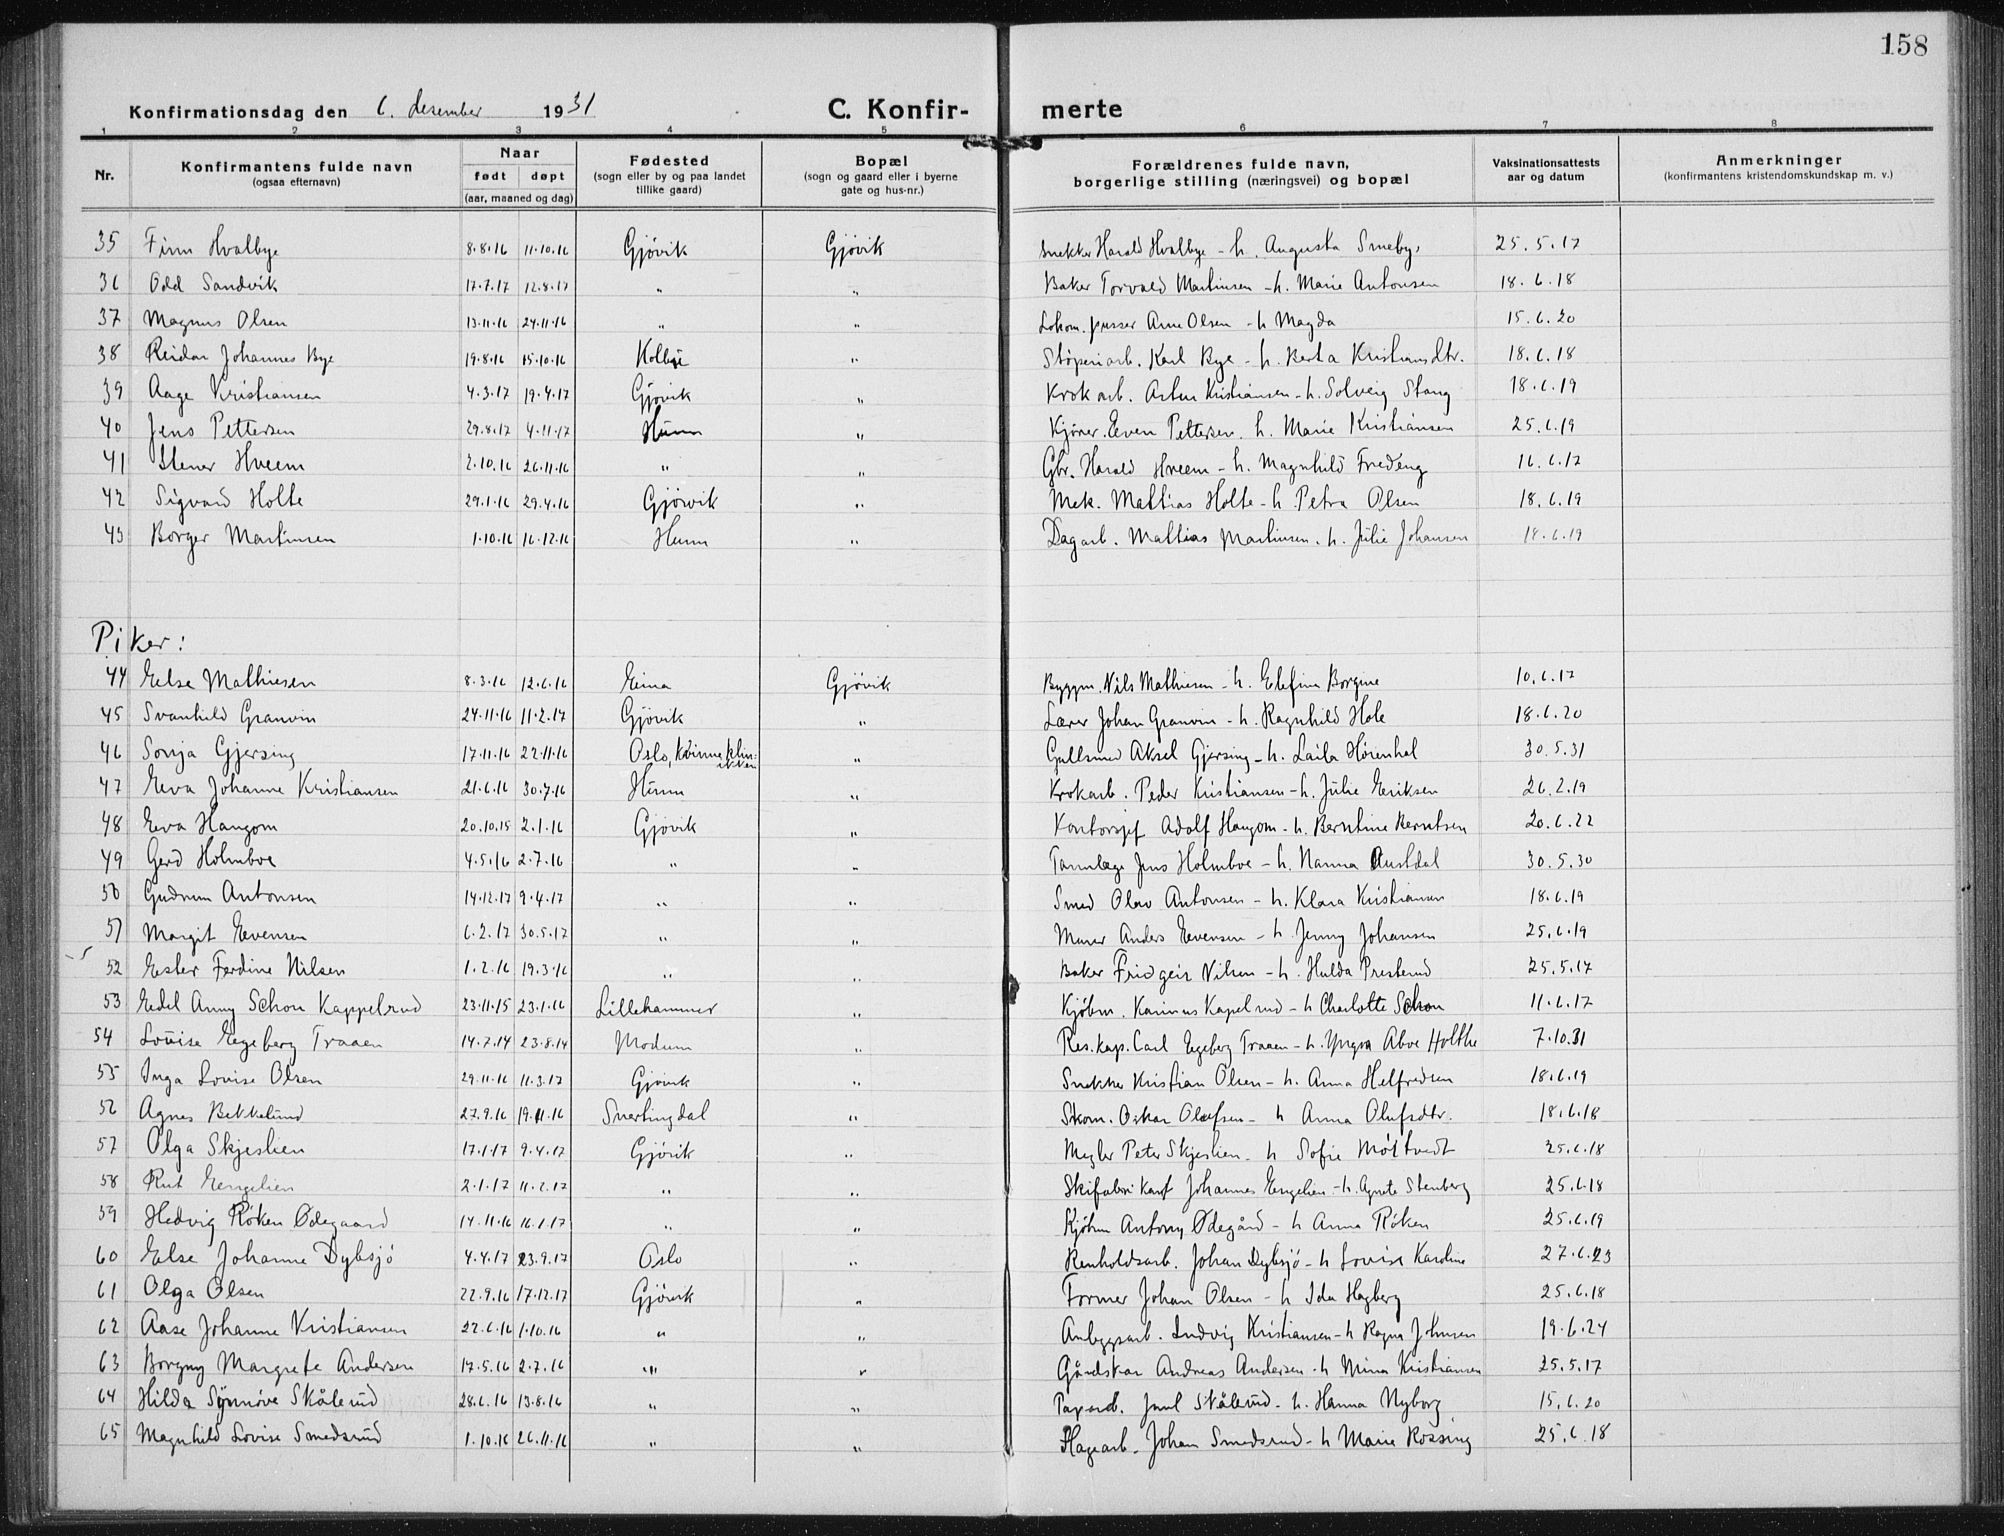 158
Konfirmationsdag den 6. desember 1931 C. Konfir- merte
1 2 3 4 5 6 7 8
Nr. Konfirmantens fulde navn (ogsaa efternavn) Naar født døpt (aar, maaned og dag) Fødested (sogn eller by og paa landet tillike gaard) Bopæl (sogn og gaard eller i byerne gate og hus-nr.) Forældrenes fulde navn, borgerlige stilling (næringsvei) og bopæl Vaksinationsattests aar og datum Anmerkninger (konfirmantens kristendomskundskap m. v.)
35 Finn Hvalbye 8.8.16 11.10.16 Gjøvik Gjøvik Snekker Harald Hvalbye - h. Augusta Smeby 25.5.17
36 Odd Sandvik 17.7.17 12.8.17 " " Baker Torvald Martinsen - h. Marie Antonsen 18.6.18
37 Magnus Olsen 13.11.16 24.11.16 " " Lokom.pusser Arne Olsen - h Magda 15.6.20
38 Reidar Johannes Bye 19.8.16 15.10.16 Kolbu " Støperiarb. Karl Bye - h. Berta Kristiansdtr. 18.6.18
39 Aage Kristiansen 4.3.17 19.4.17 Gjøvik " Krokarb. Artur Kristiansen - h. Solveig Stang 18.6.19
40 Jens Pettersen 29.8.17 4.11.17 Hunn " Kjører. Even Pettersen. h. Marie Kristiansen 25.6.19
41 Stener Hveem 2.10.16 26.11.16 " " Gbr. Harald Hveem - h. Magnhild Fredeng 16.6.17
42 Sigvard Holte 29.1.16 29.4.16 Gjøvik " Mek. Mattias Holte - h Petra Olsen 18.6.19
43 Borger Martinsen 1.10.16 16.12.16 Hunn " Dagarb. Mattias Martinsen. h. Julie Johansen 18.6.19
Piker:
44 Else Mathiesen 8.3.16 12.6.16 Eina Gjøvik Byggm. Nils Mathiesen - h. Elefine Borgine 10.6.17
45 Svanhild Granvin 24.11.16 11.2.17 Gjøvik " Lærer Johan Granvin - h. Ragnhild Hole 18.6.20
46 Sonja Gjersing 17.11.16 22.11.16 Oslo, Kvinneklinikken " Gullsmed Aksel Gjersing - h. Laila Hørenhal 30.5.31
47 Eva Johanne Kristiansen 21.6.16 30.7.16 Hunn " Krokarb. Peder Kristiansen - h. Julie Eriksen 26.2.19
48 Eva Haugom 20.10.15 2.1.16 Gjøvik " Kontorsjef Adolf Haugom - h. Berntine Berntsen 20.6.22
49 Gerd Holmboe 4.5.16 2.7.16 " " Tannlæge Jens Holmboe - h. Nanna Austdal 30.5.30
50 Gudrun Antonsen 14.12.17 9.4.17 " " Smed Olav Antonsen - h. Klara Kristiansen 18.6.19
51 Margit Evensen 6.2.17 30.5.17 " " Murer Anders Evensen - h Jenny Johansen 25.6.19
52 Ester Ferdine Nilsen 1.2.16 19.3.16 " " Baker Fridgeir Nilsen - h. Hulda Presterud 25.5.17
53 Edel Anny Schon Kappelrud 23.11.15 23.1.16 Lillehammer " Kjøbm. Karinus Kapelrud - h Charlotte Schon 11.6.17
54 Louise Egeberg Traaen 14.7.14 23.8.14 Modum " Res.kap. Carl Egeberg Traaen - h. Yngva Aboe Holthe 7.10.31
55 Inga Lovise Olsen 29.11.16 11.3.17 Gjøvik " Snekker Kristian Olsen - h. Anna Helfredsen 18.6.19
56 Agnes Bekkelund 27.9.16 19.11.16 Snertingdal " Skom. Oskar Olufsen - h Anna Olufsdtr. 18.6.18
57 Olga Skjeslien 17.1.17 9.4.17 Gjøvik " Megler Peter Skjeslien - h Sofie Møltvedt 25.6.18
58 Rut Engelien 2.1.17 11.2.17 " " Skifabrikant Johannes Engelien. - h. Agnete Stenberg 25.6.18
59 Hedvig Røken Ødegaard 14.11.16 16.1.17 " " Kjøbm Antony Ødegård - h Anna Røken 25.6.19
60 Else Johanne Dybsjø 4.4.17 23.9.17 Oslo " Renholdsarb. Johan Dybsjø - h Lovise Karoline 27.6.23
61 Olga Olsen 22.9.16 17.12.17 Gjøvik " Former Johan Olsen - h Ida Hagberg 25.6.18
62 Aase Johanne Kristiansen 22.6.16 1.10.16 " " Anleggsarb. Ludvig Kristiansen - h Ragna Johnsen 19.6.24
63 Borgny Margrete Andersen 17.5.16 2.7.16 " " Gårdskar Andreas Andersen - h Mina Kristiansen 25.5.17
64 Hilda Synnøve Skålerud 28.6.16 13.8.16 " " Paparb. Juul Skålerud - h. Hanna Nyborg 15.6.20
65 Magnhild Lovise Smedsrud 1.10.16 26.11.16 " " Hagearb. Johan Smedsrud - h Marie Rossing 25.6.18